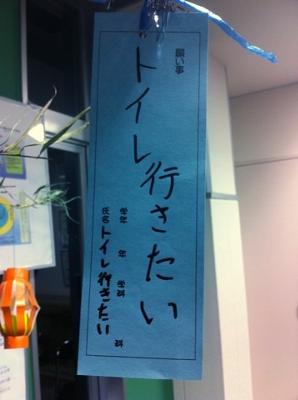 願い事
トイレ行きたい
学年 年 学科
氏名 トイレ行きたい 科